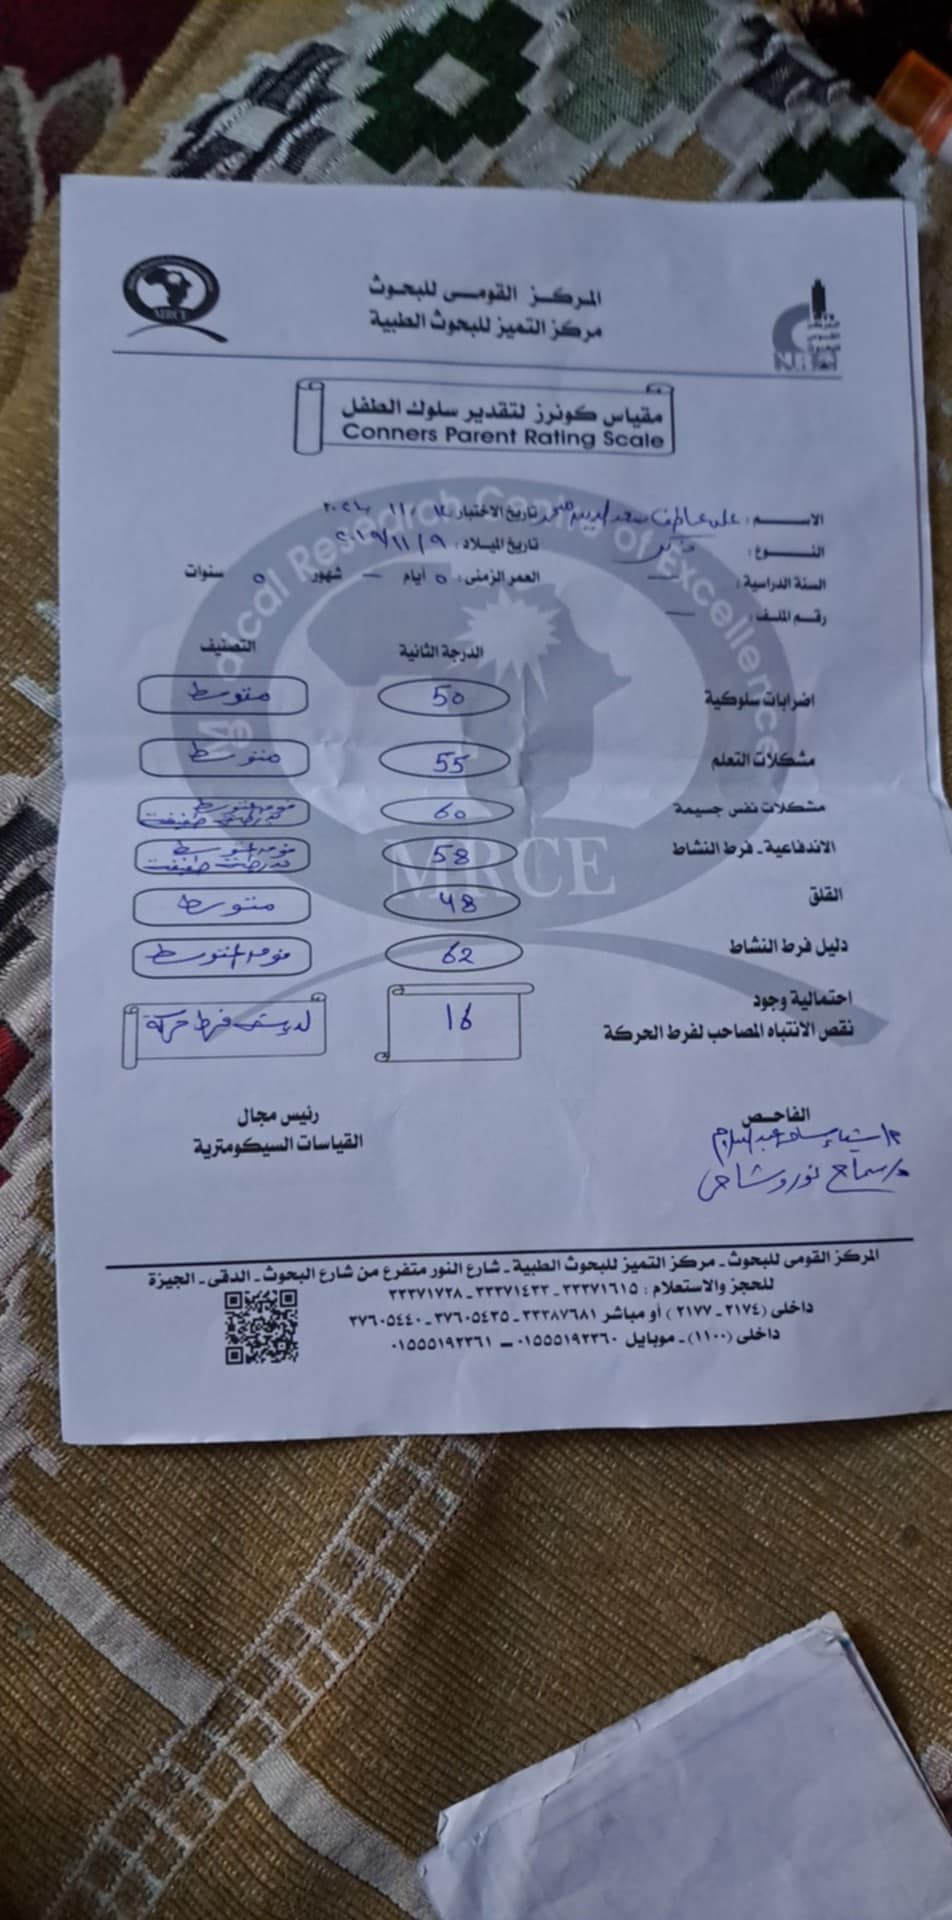 المركز القومى للبحوث
مركز التميز للبحوث الطبية
MRCE
المركز القومى للبحوث
NRC
مقياس كونرز لتقدير سلوك الطفل
Conners Parent Rating Scale
الاسم: على عاطف سعد تاريخ الاختبار:
النوع: ذكر تاريخ الميلاد: ٢٠١٩/١١/٩
السنة الدراسية: — العمر الزمنى: ٥ أيام — شهور ٥ سنوات
رقم الملف: —
الدرجة الثانية التصنيف
اضرابات سلوكية 50 متوسط
مشكلات التعلم 55 متوسط
مشكلات نفس جسيمة 60 فوق المتوسط بدرجة طفيفة
الاندفاعية - فرط النشاط 58 فوق المتوسط بدرجة طفيفة
القلق 48 متوسط
دليل فرط النشاط 62 فوق المتوسط
احتمالية وجود
نقص الانتباه المصاحب لفرط الحركة 16 فرط حركة
Medical Research Centre of Excellence
MRCE
الفاحص رئيس مجال
القياسات السيكومترية
المركز القومى للبحوث - مركز التميز للبحوث الطبية - شارع النور متفرع من شارع البحوث - الدقى - الجيزة
للحجز والاستعلام : ٣٣٣٧١٦١٥ - ٣٣٣٧١٤٣٣ - ٣٣٣٧١٧٢٨
داخلى (٢١٧٤ - ٢١٧٧) أو مباشر ٣٣٣٨٧٦٨١ - ٣٧٦٠٥٤٣٥ - ٣٧٦٠٥٤٤٠
داخلى (١١٠٠) - موبايل ٠١٥٥٥١٩٢٣٦٠ - ٠١٥٥٥١٩٢٣٦١